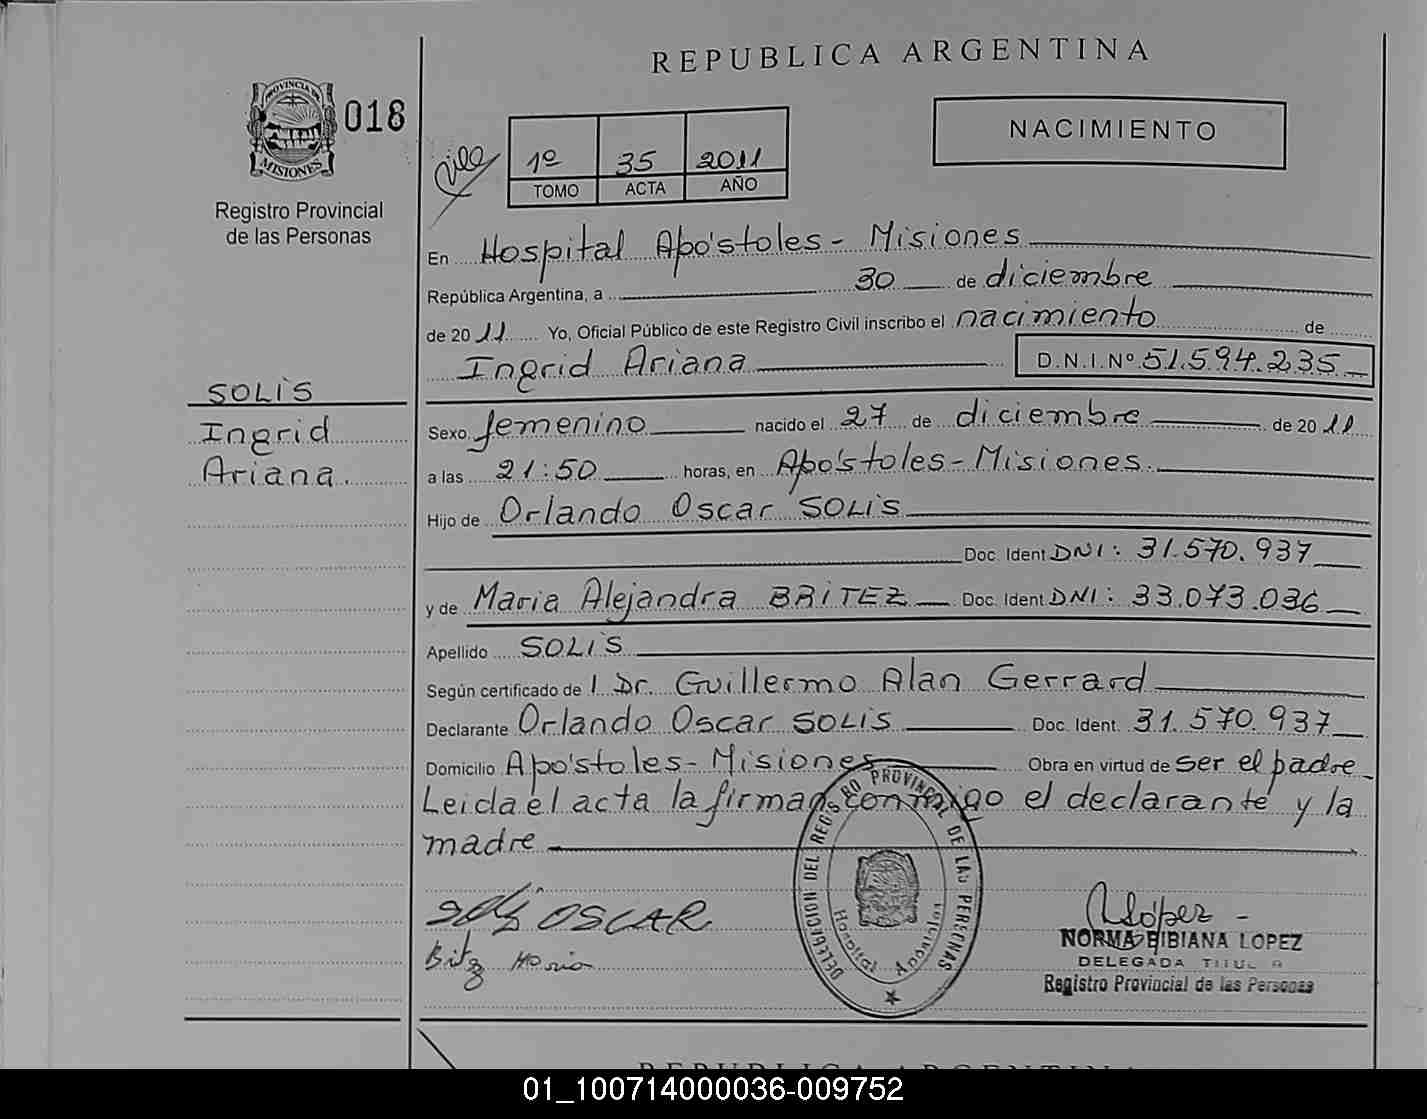 REPUBLICA ARGENTINA
PROVINCIA DE
MISIONES
018
Registro Provincial
de las Personas
1º 35 2011
TOMO ACTA AÑO
NACIMIENTO
En Hospital Apóstoles - Misiones
República Argentina, a 30 de diciembre
de 2011 Yo, Oficial Público de este Registro Civil inscribo el nacimiento de
Ingrid Ariana D.N.I. Nº 51.594.235
SOLIS
Ingrid
Ariana.
Sexo femenino nacido el 27 de diciembre de 2011
a las 21:50 horas, en Apóstoles - Misiones.
Hijo de Orlando Oscar SOLIS
Doc. Ident DNI: 31.570.937
y de Maria Alejandra BRITEZ Doc. Ident DNI: 33.073.036
Apellido SOLIS
Según certificado de l Dr. Guillermo Alan Gerrard
Declarante Orlando Oscar SOLIS Doc. Ident. 31.570.937
Domicilio Apóstoles - Misiones Obra en virtud de ser el padre
Leida el acta la firman conmigo el declarante y la
madre
DELEGACION DEL REGISTRO PROVINCIAL DE LAS PERSONAS
Hospital Apóstoles
Solis OSCAR
Britez Maria
López -
NORMA BIBIANA LOPEZ
DELEGADA TITULAR
Registro Provincial de las Personas
REPUBLICA ARGENTINA
01_100714000036-009752